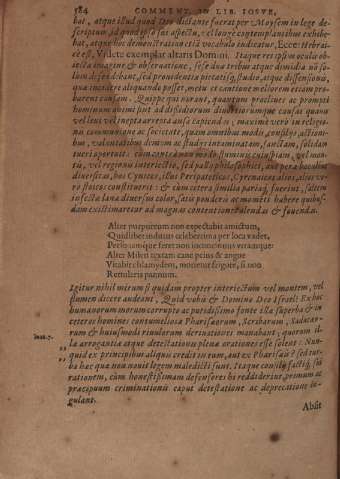 584 COMMENT. IN LIB. IOSVE,
bat, atque illud quod Deo dictante fuerat per Moysem in lege de-
scriptum, id quod ipso sat aspectu, vel longe contemplantibus exhibe-
bat, atque hoc demonstratiua etiã vocabula indicatur, Ecce: Hebrai-
ce est, Videte exemplar altaris Domini. Itaque res ipsas oculis ob-
iecta imagine & obseruatione, sese à duabus tribus atque dimidia nõ so-
lum defendebant, sed prouidentia pietatisq, studio, atque dissensionũ,
qua incidere aliquando posset, metu et cautione meliorem etiam pro-
barent causam. Quippe qui norant, quantum procliues ac prompti
hominum animi sint ad dissidiorum diuortiorumque causas quauis
vel leui vel inepta arrepta ausa capiendas; maxime vero in religio-
nis communione ac societate, quam omnibus modis, consilijs, actioni-
bus, voluntatibus demum ac studijs intaminatam, sanctam, solidam
tueri oportuit. cùm tantum non modo fluminis cuiuspiam, vel mon-
tis, vel regionis interiectio, sed pallij philosophici, aut pera baculive
diuersitas, hos Cynicos, illos Peripateticos, Cyrenaicos alios, alios ve-
rò stoicos constituerit: & cùm cetera similia pariaq, fuerint, saltem
infecta lana diuersus color, satis ponderis ac momenti habere quibus-
dam existimaretur ad magnas contentiones alendas & fouendas.
Alter purpureum non expectabit amictum,
Quidlibet indutus celeberrima per loca vadet,
Personamque feret non inconcinnus vtramque:
Alter Mileti textam cane peius & angue
Vitabit chlamydem, morietur frigore, si non
Retuleris pannum.
Igitur nihil mirum si quidam propter interiectum vel montem, vel
flumen dicere audeant, Quid vobis & Domino Deo Israel? Ex hoc
humanorum morum corrupto ac putidissimo fonte illa superba & in
ceteros homines contumeliosa Pharisæorum, Scribarum, Saducæo-
rum & huiusmodi riuulorum deriuationes manabant, quorum il-
la arrogantiæ atque detestationis plenæ orationes esse solent: Nun-
Ioan. 7.
quid ex principibus aliquis credit in eum, aut ex Pharisæis? sed tur-
ba hæc quæ non nouit legem maledicti sunt. Itaque consilij factiq, sui
rationem, cùm honestissimam defensores hi reddiderint, primum ac
præcipuum criminationis caput detestatione ac deprecatione iu-
gulant.
Absit